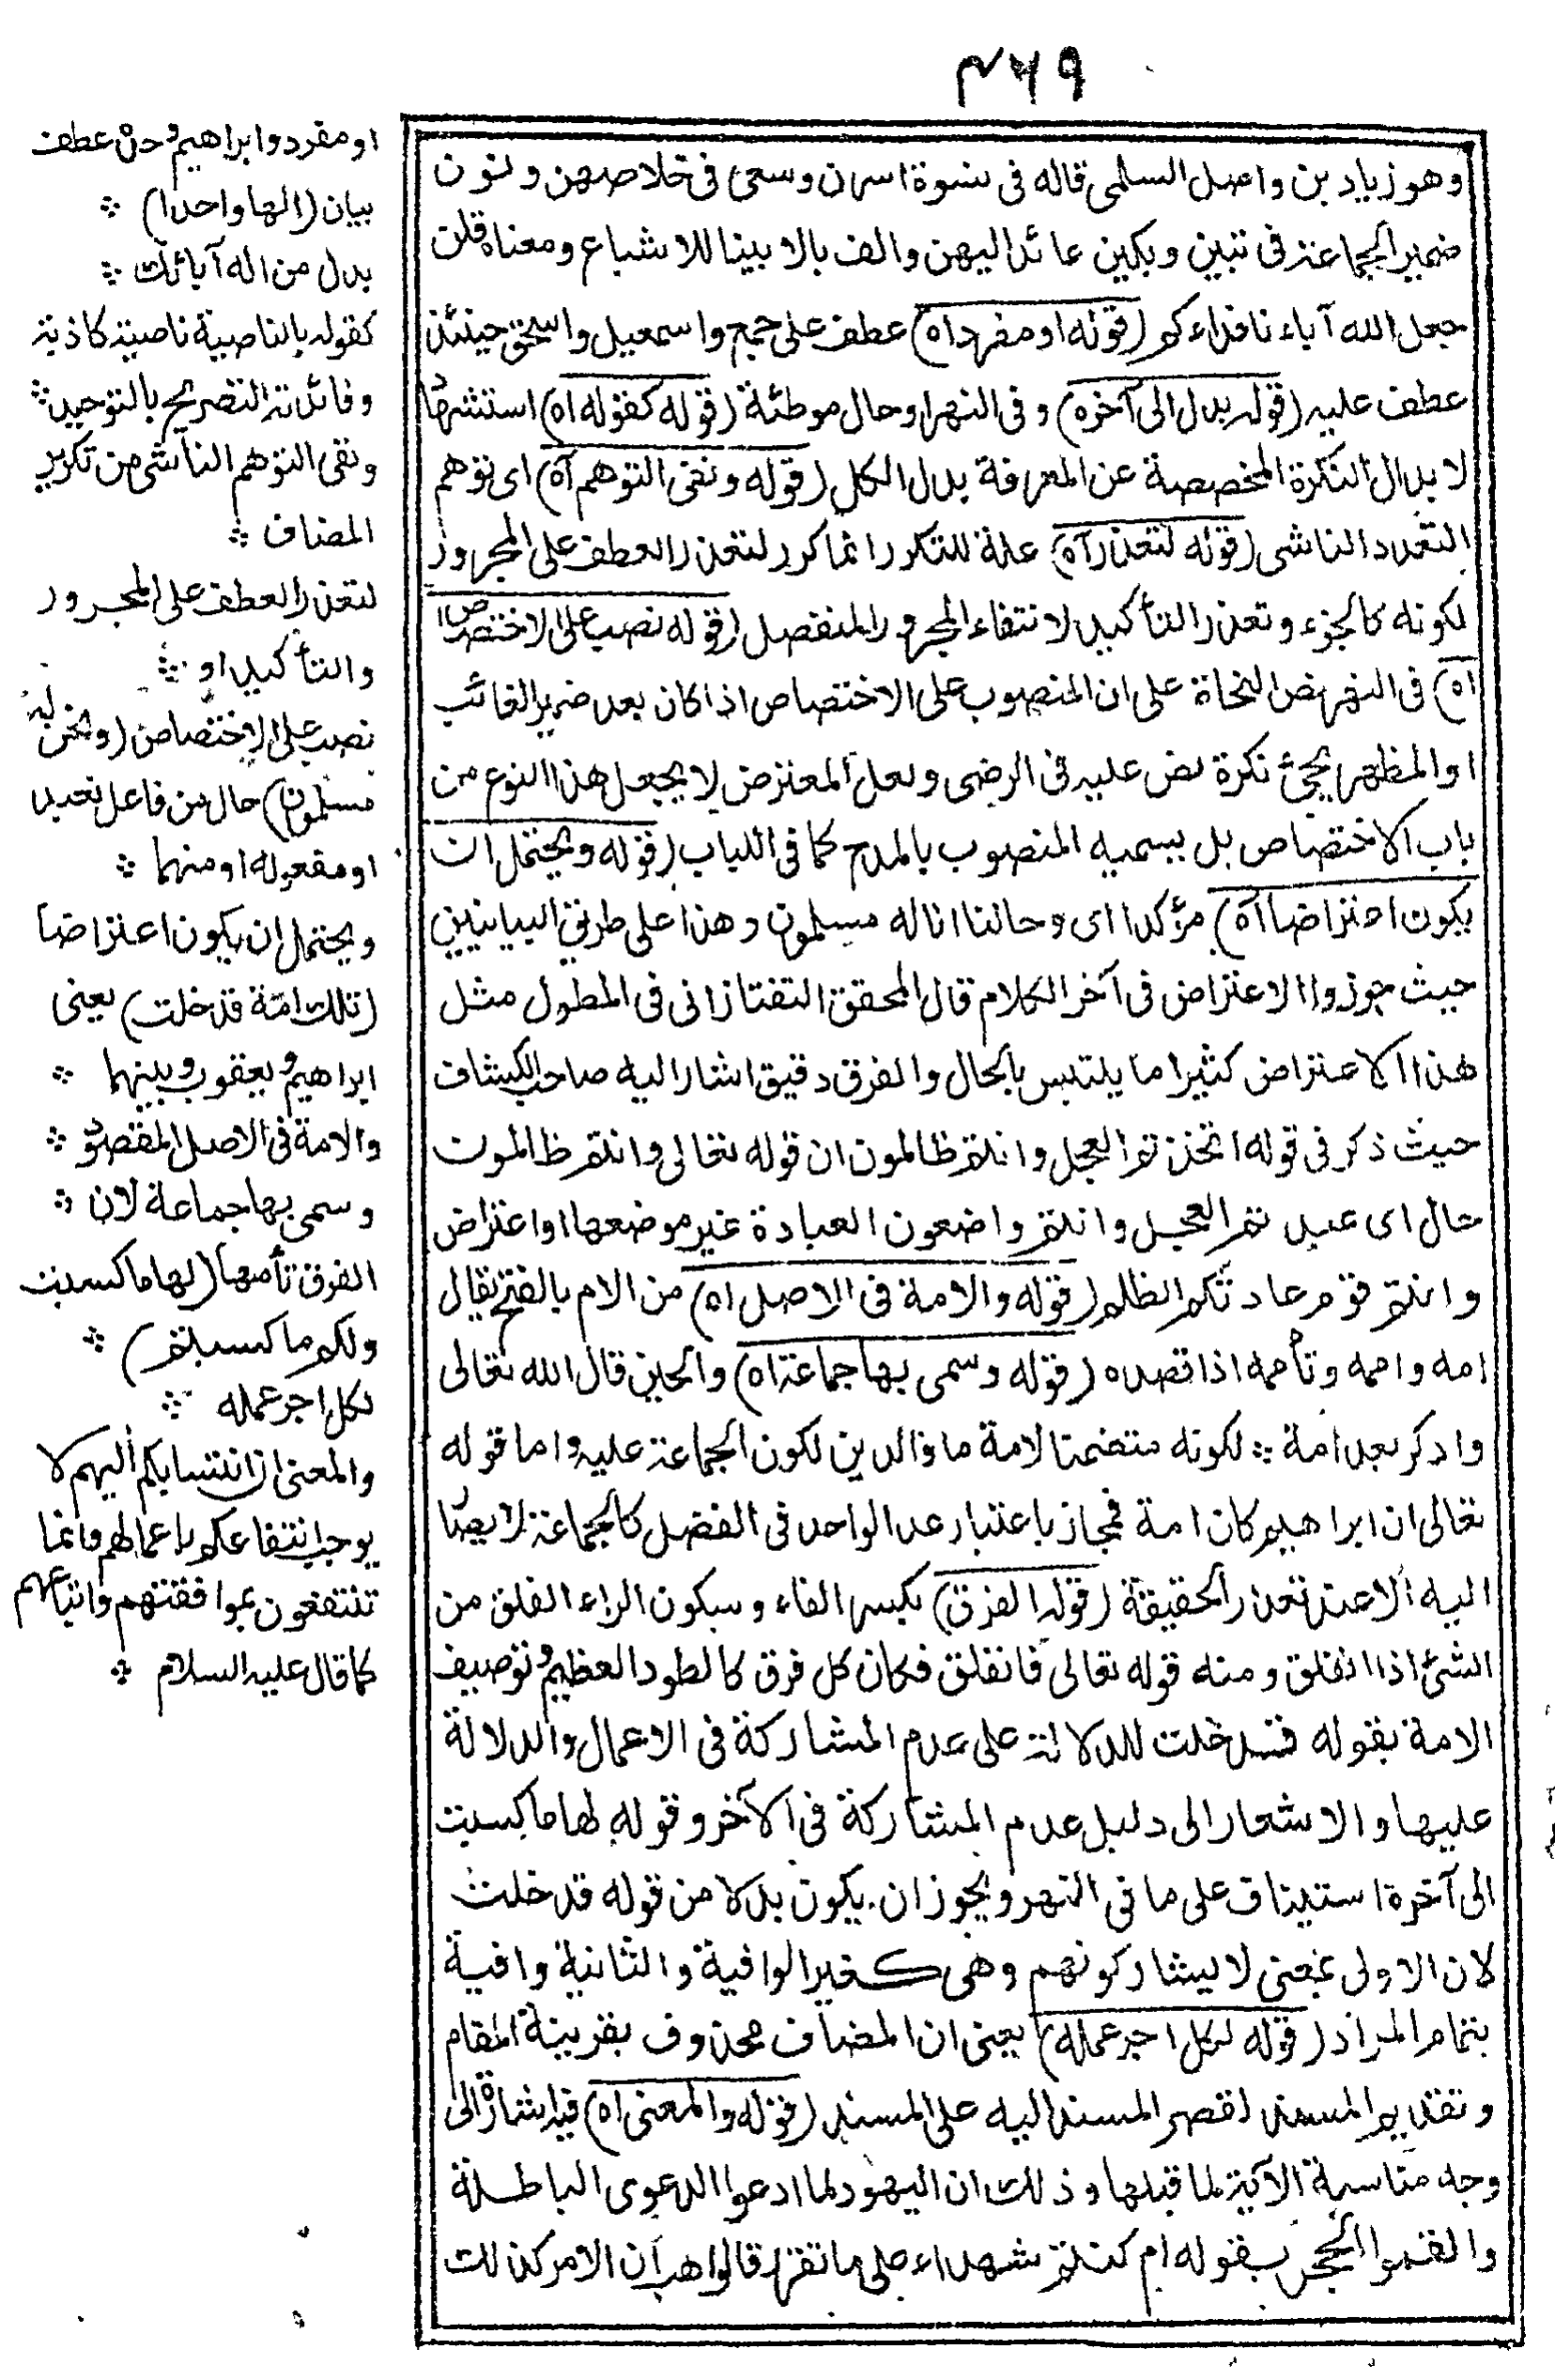 ۴۶۹
وهو زياد بن واصل السلمى قاله فى نسوة اسرن وسعى فى خلاصهن ونون
ضمير الجماعة فى تبين وبكين عائد اليهن والف بالابينا للاشباع ومعناه قلن
جعل الله آباءنا فداءكم (قوله او مفرد اه) عطف على جمع واسمعيل واسحق حينئذ
عطف عليه (قوله بدل الى آخره) وفى النهر او حال موطئة (قوله كقوله اه) استشهاد
لابدال النكرة المخصصة عن المعرفة بدل الكل (قوله ونفى التوهم آه) اى توهم
التعدد الناشى (قوله لتعذر آه) علة للتكرر انما كرر لتعذر العطف على المجرور
لكونه كالجزء وتعذر التأكيد لانتفاء المجرور المنفصل (قوله نصب على الاختصاص
اه) فى النهر نص النحاة على ان المنصوب على الاختصاص اذا كان بعد ضمير الغائب
او المظهر يجئ نكرة نص عليه فى الرضى ولعل المعترض لا يجعل هذا النوع من
باب الاختصاص بل يسميه المنصوب بالمدح كما فى اللباب (قوله ويحتمل ان
يكون اعتراضا آه) مؤكدا اى وحالنا انا له مسلمون وهذا على طريق البيانيين
حيث جوزوا الاعتراض فى آخر الكلام قال المحقق التفتازانى فى المطول مثل
هذا الاعتراض كثيرا ما يلتبس بالحال والفرق دقيق اشار اليه صاحب الكشاف
حيث ذكر فى قوله اتخذتم العجل وانتم ظالمون ان قوله تعالى وانتم ظالمون
حال اى عبدتم العجل وانتم واضعون العبادة غير موضعها او اعتراض
وانتم قوم عادتكم الظلم (قوله والامة فى الاصل اه) من الام بالفتح يقال
امه وامه وتأممه اذا قصده (قوله وسمى بها جماعة اه) والحين قال الله تعالى
وادكر بعد امة ؞ لكونه متضمنا لامة ما والدين لكون الجماعة عليه واما قوله
تعالى ان ابراهيم كان امة فمجاز باعتبار عد الواحد فى الفضل كالجماعة لا يصار
اليه الا عند تعذر الحقيقة (قوله الفرق) بكسر الفاء وسكون الراء الفلق من
الشئ اذا انفلق ومنه قوله تعالى فانفلق فكان كل فرق كالطود العظيم وتوصيف
الامة بقوله قد خلت للدلالة على عدم المشاركة فى الاعمال والدلالة
عليها والاشعار الى دليل عدم المشاركة فى الآخر وقوله لها ما كسبت
الى آخرة استيناف على ما فى النهر ويجوز ان يكون بدلا من قوله قد خلت
لان الاولى بمعنى لا يشاركونهم وهى كغير الوافية والثانية وافية
بتمام المراد (قوله لكل اجر عمله) يعنى ان المضاف محذوف بقرينة المقام
وتقديم المسند لقصر المسند اليه على المسند (قوله والمعنى اه) فيه اشارة الى
وجه مناسبة الآية لما قبلها وذلك ان اليهود لما ادعوا الدعوى الباطلة
والقموا الحجر بقوله ام كنتم شهداء على ما تقرر قالوا هب ان الامر كذلك
او مفرد وابراهيم وحده عطف
بيان (الها واحدا) ؞
بدل من اله آبائك ؞
كقوله بالناصية ناصية كاذبة
وفائدته التصريح بالتوحيد ؞
ونفى التوهم الناشى من تكرير
المضاف ؞
لتعذر العطف على المجرور
والتأكيد او ؞
نصب على الاختصاص (ونحن له
مسلمون) حال من فاعل نعبد
او مفعوله او منهما ؞
ويحتمل ان يكون اعتراضا
(تلك امة قد خلت) يعنى
ابراهيم ويعقوب وبنيهما ؞
والامة فى الاصل المقصود ؞
وسمى بها جماعة لان ؞
الفرق تأمها (لها ما كسبت
ولكم ما كسبتم) ؞
لكل اجر عمله ؞
والمعنى ان انتسابكم اليهم لا
يوجب انتفاعكم باعمالهم وانما
تنتفعون بموافقتهم واتباعهم
كما قال عليه السلام ؞